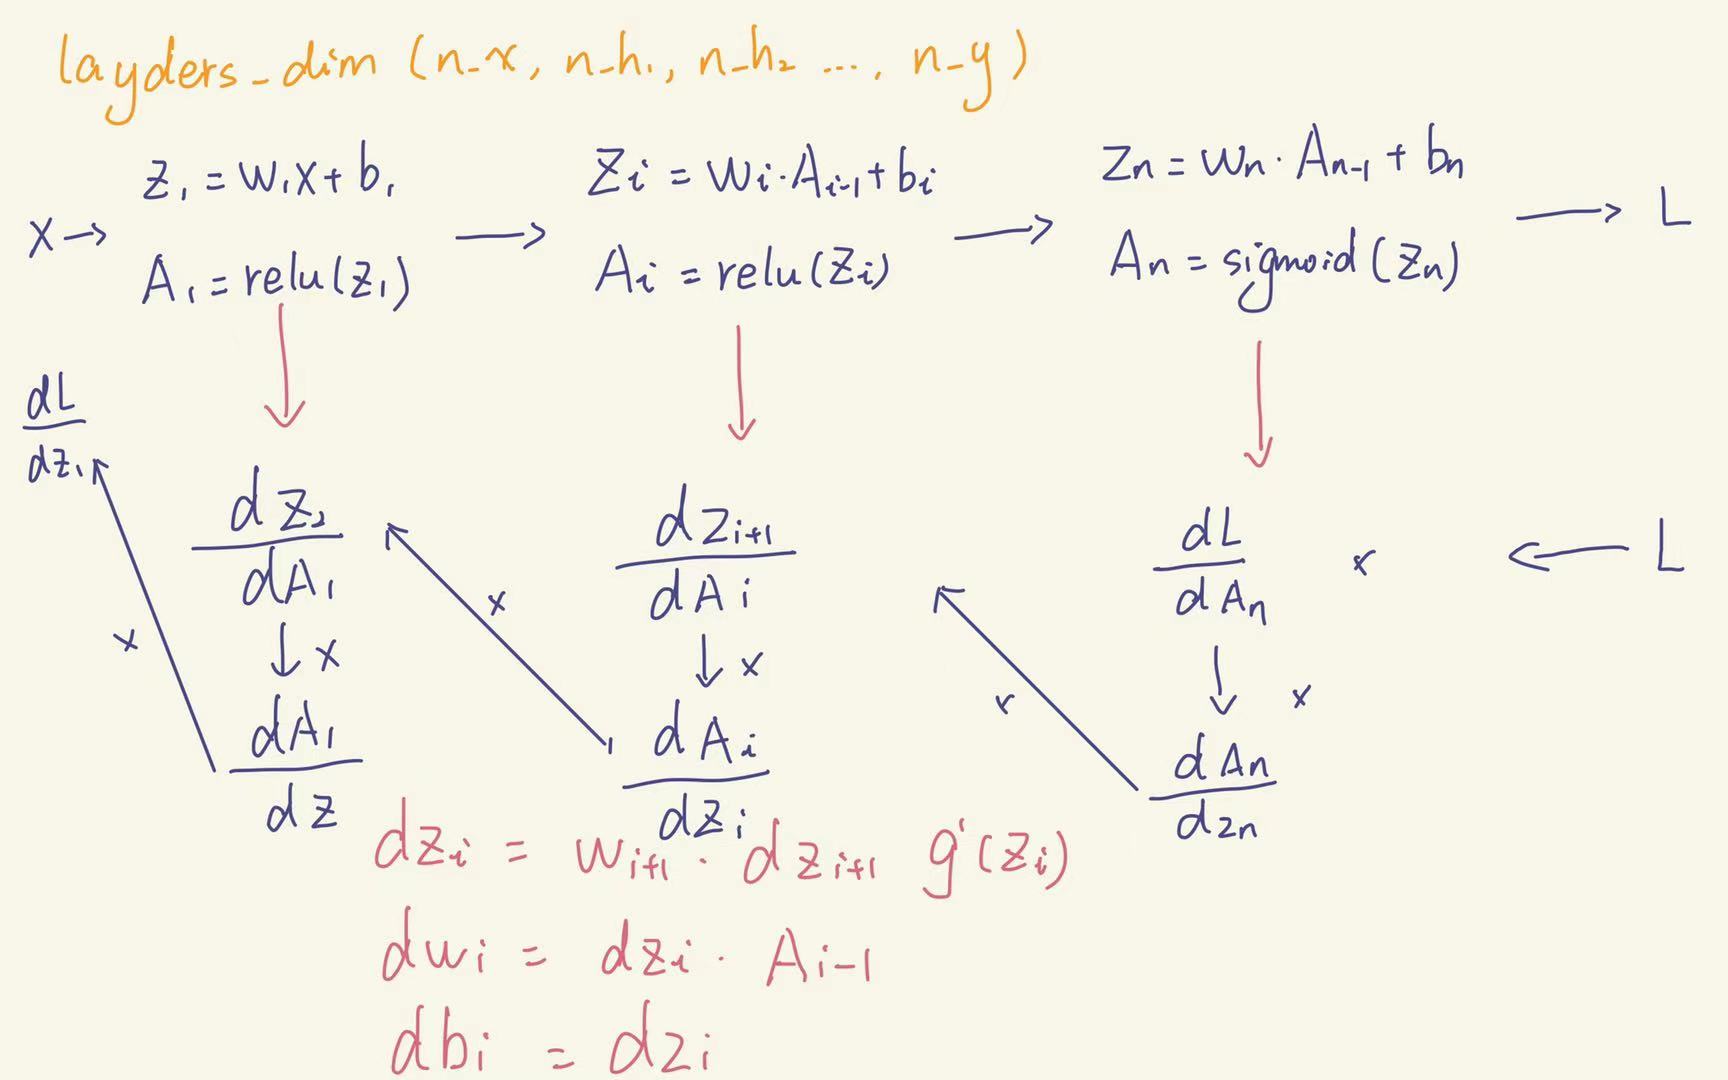 layders_dim (n_x, n_h₁, n_h₂ ..., n_y)
z₁ = w₁x + b₁
Zi = wi·Ai-1 + bi
Zn = wn·An-1 + bn
X →
A₁ = relu(z₁)
→
Ai = relu(Zi)
→
An = sigmoid(Zn)
→ L
dL
dz₁
dz₂
dA₁
↓ x
dA₁
dz
x
dZi+1
dAi
↓ x
dAi
dzi
x
dL
dAn
x
← L
↓ x
dAn
dzn
x
dzi = wi+1 · dzi+1 g'(Zi)
dwi = dzi · Ai-1
dbi = dzi